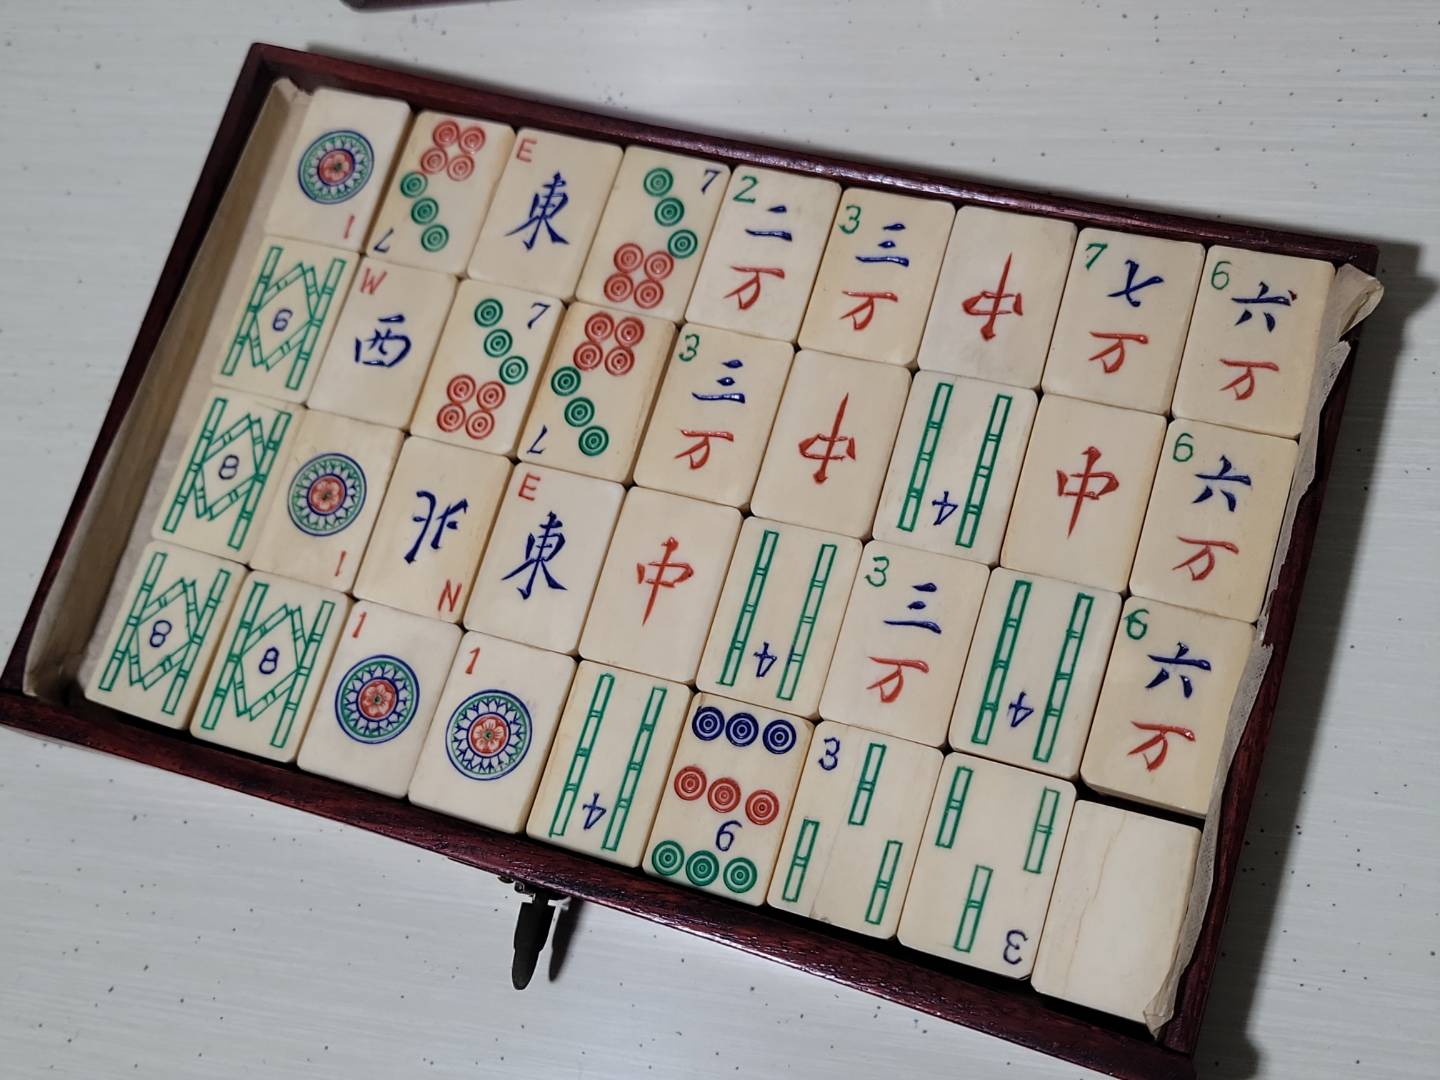 1
7
E
東
7
2
二
万
3
三
万
中
7
七
万
6
六
万
8
W
西
7
7
3
三
万
中
4
中
6
六
万
8
1
北
N
E
東
中
4
3
三
万
4
6
六
万
8
8
1
1
4
9
3
3